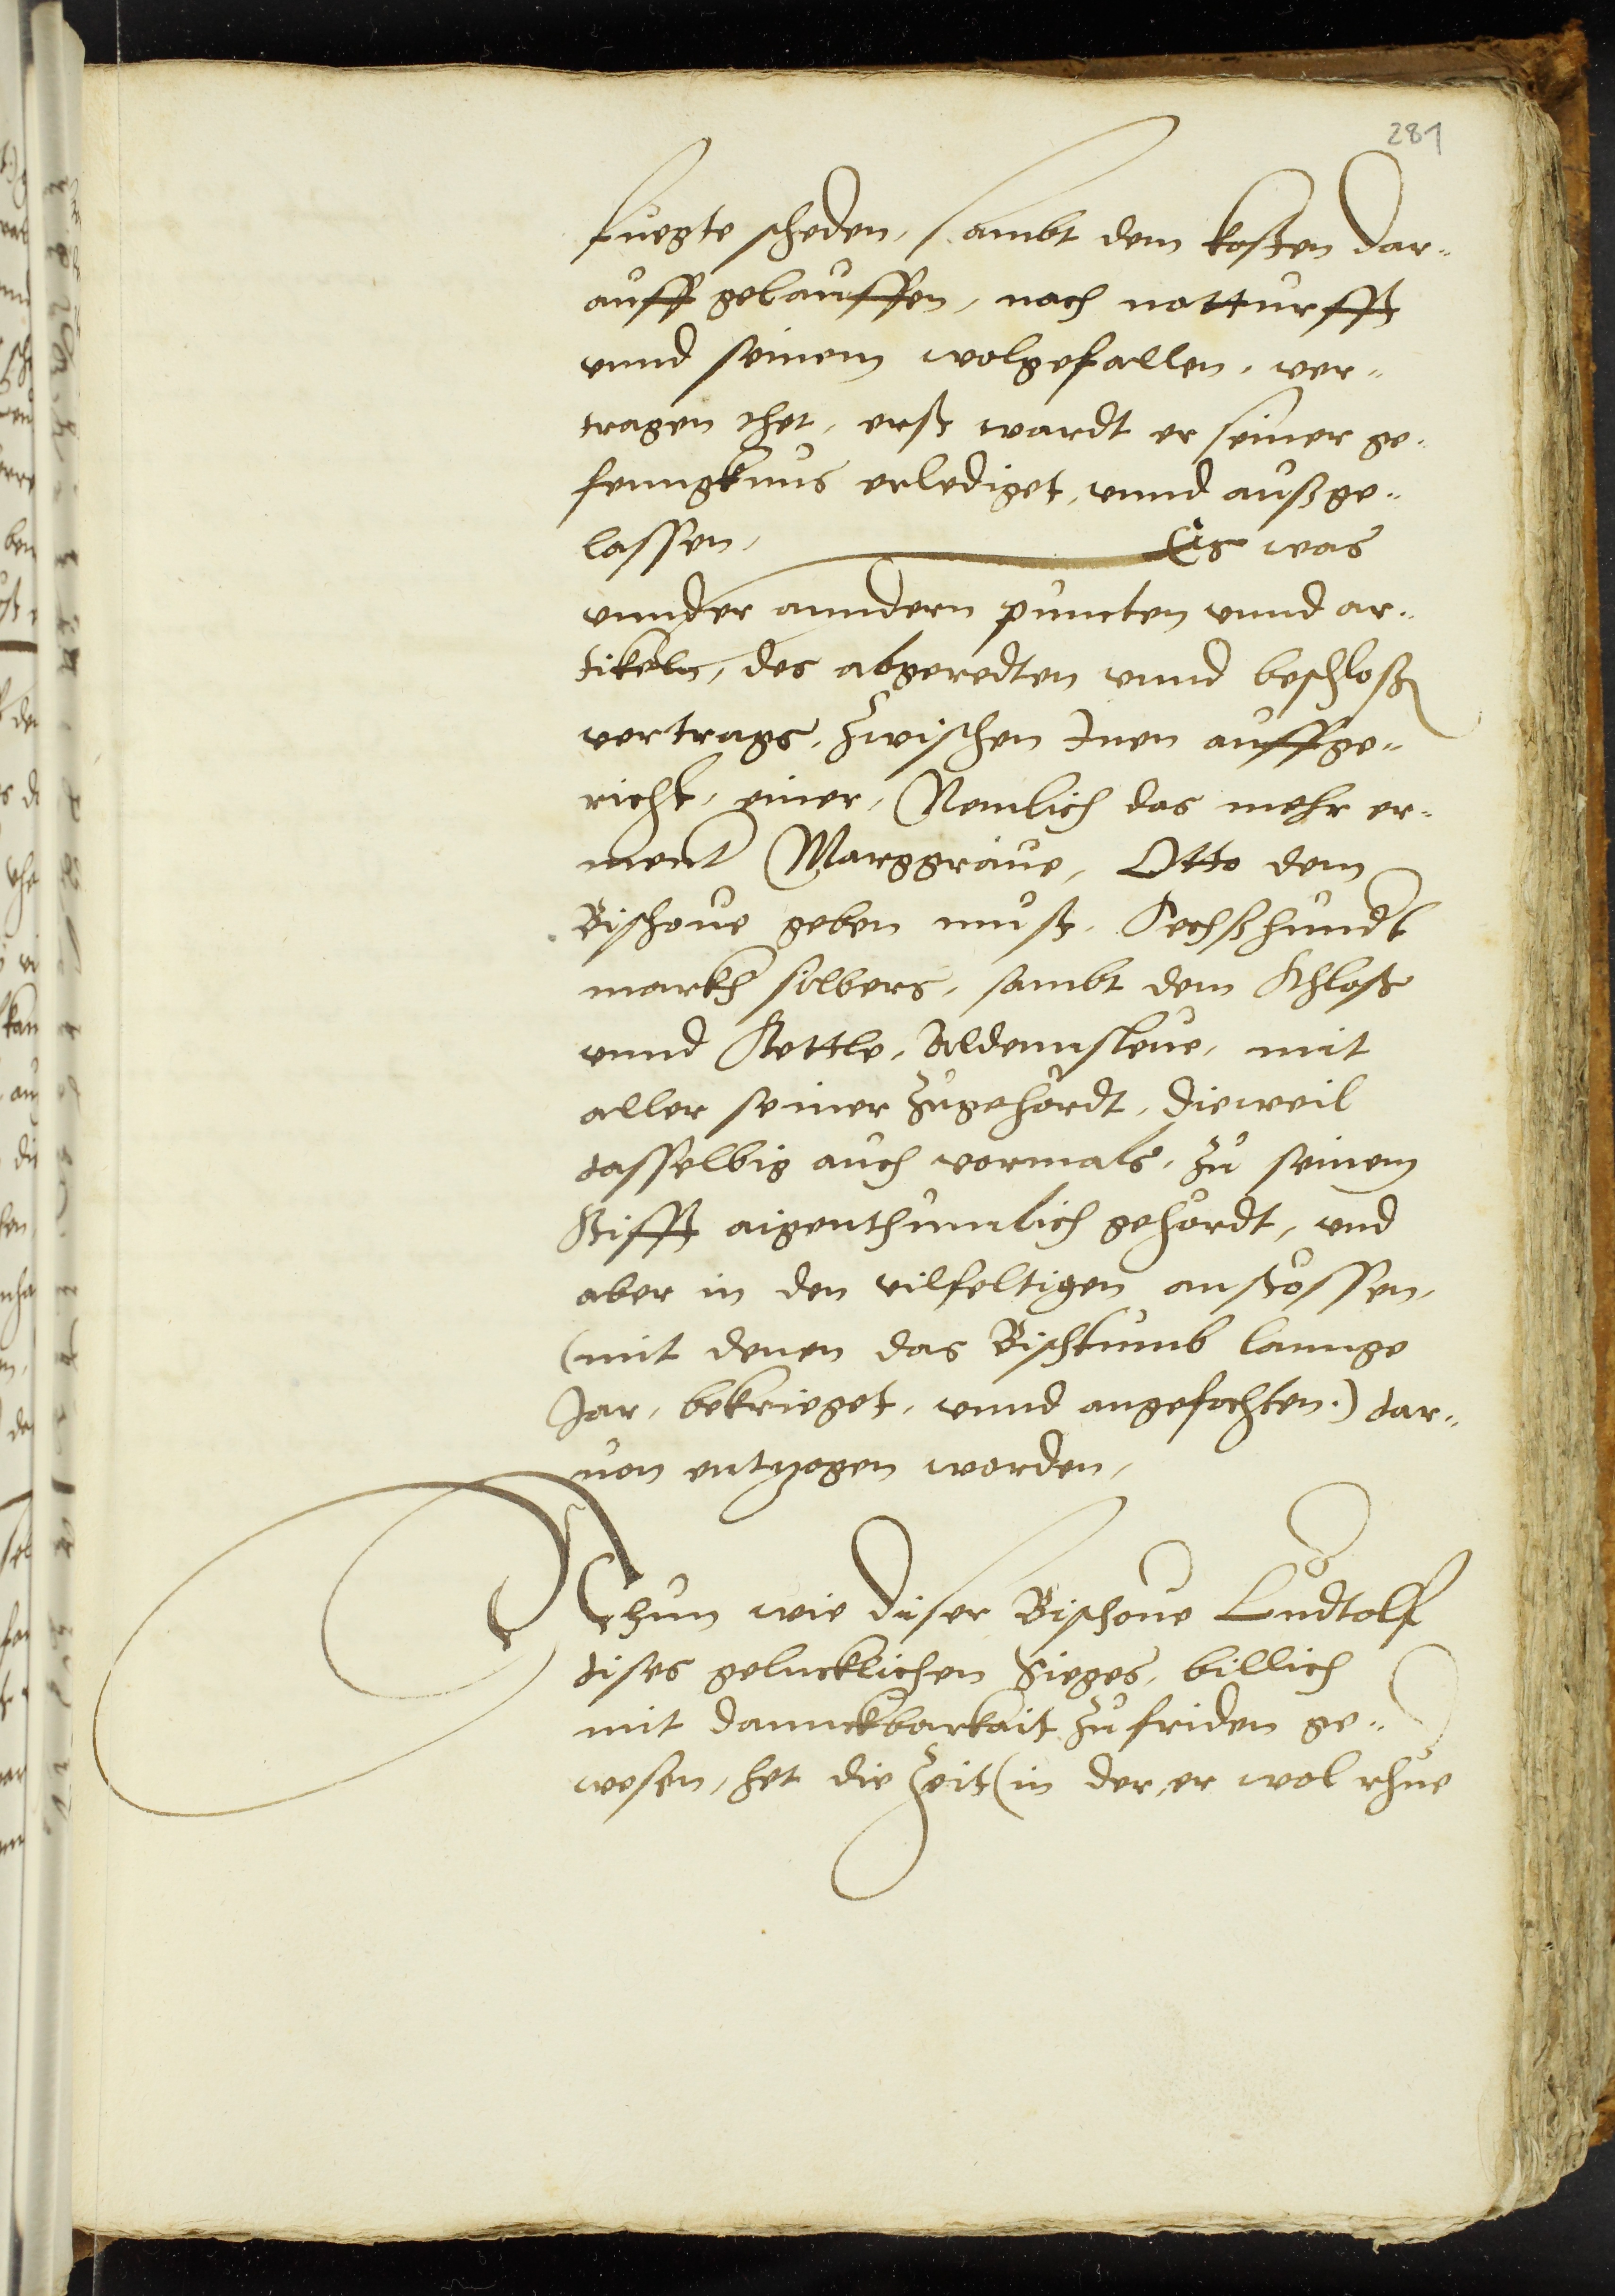 281
fuegte scheden, sambt dem kosten dar„
auff gelauffen, nach notturfft
vnnd seinem wolgefallen, ver„
tragen thet, erst wardt er seiner ge„
fenngknus erlediget, vnnd außge„
lassen, Es was
vnnder anndern puncten vnnd ar„
tikeln, des abgeredten vnnd beschloßn
vertrags, zwischen Jnen auffge„
richt, einer, Nemlich das mehr er„
ment Marggraue, Otto dem
Bischoue geben muest, Sechßhundt
markh silbers, sambt dem Schloß
vnnd Stettle, Aldennsleue, mit
aller seiner zugehördt, dieweil
dasselbig auch vormals, zu seinem
Stifft aigenthumlich gehördt, vnd
aber in den vilfeltigen anstössen,
(mit denen das Bischtumb lannge
Jar, bekrieget, vnnd angefochten.) dar„
uon entzogen worden,
Nhun wie diser Bischoue Ludtolf
dises gelucklichen Sieges, billich
mit dannckbarkait zufriden ge„
wesen, het die Zeit (in der, er wol rhue